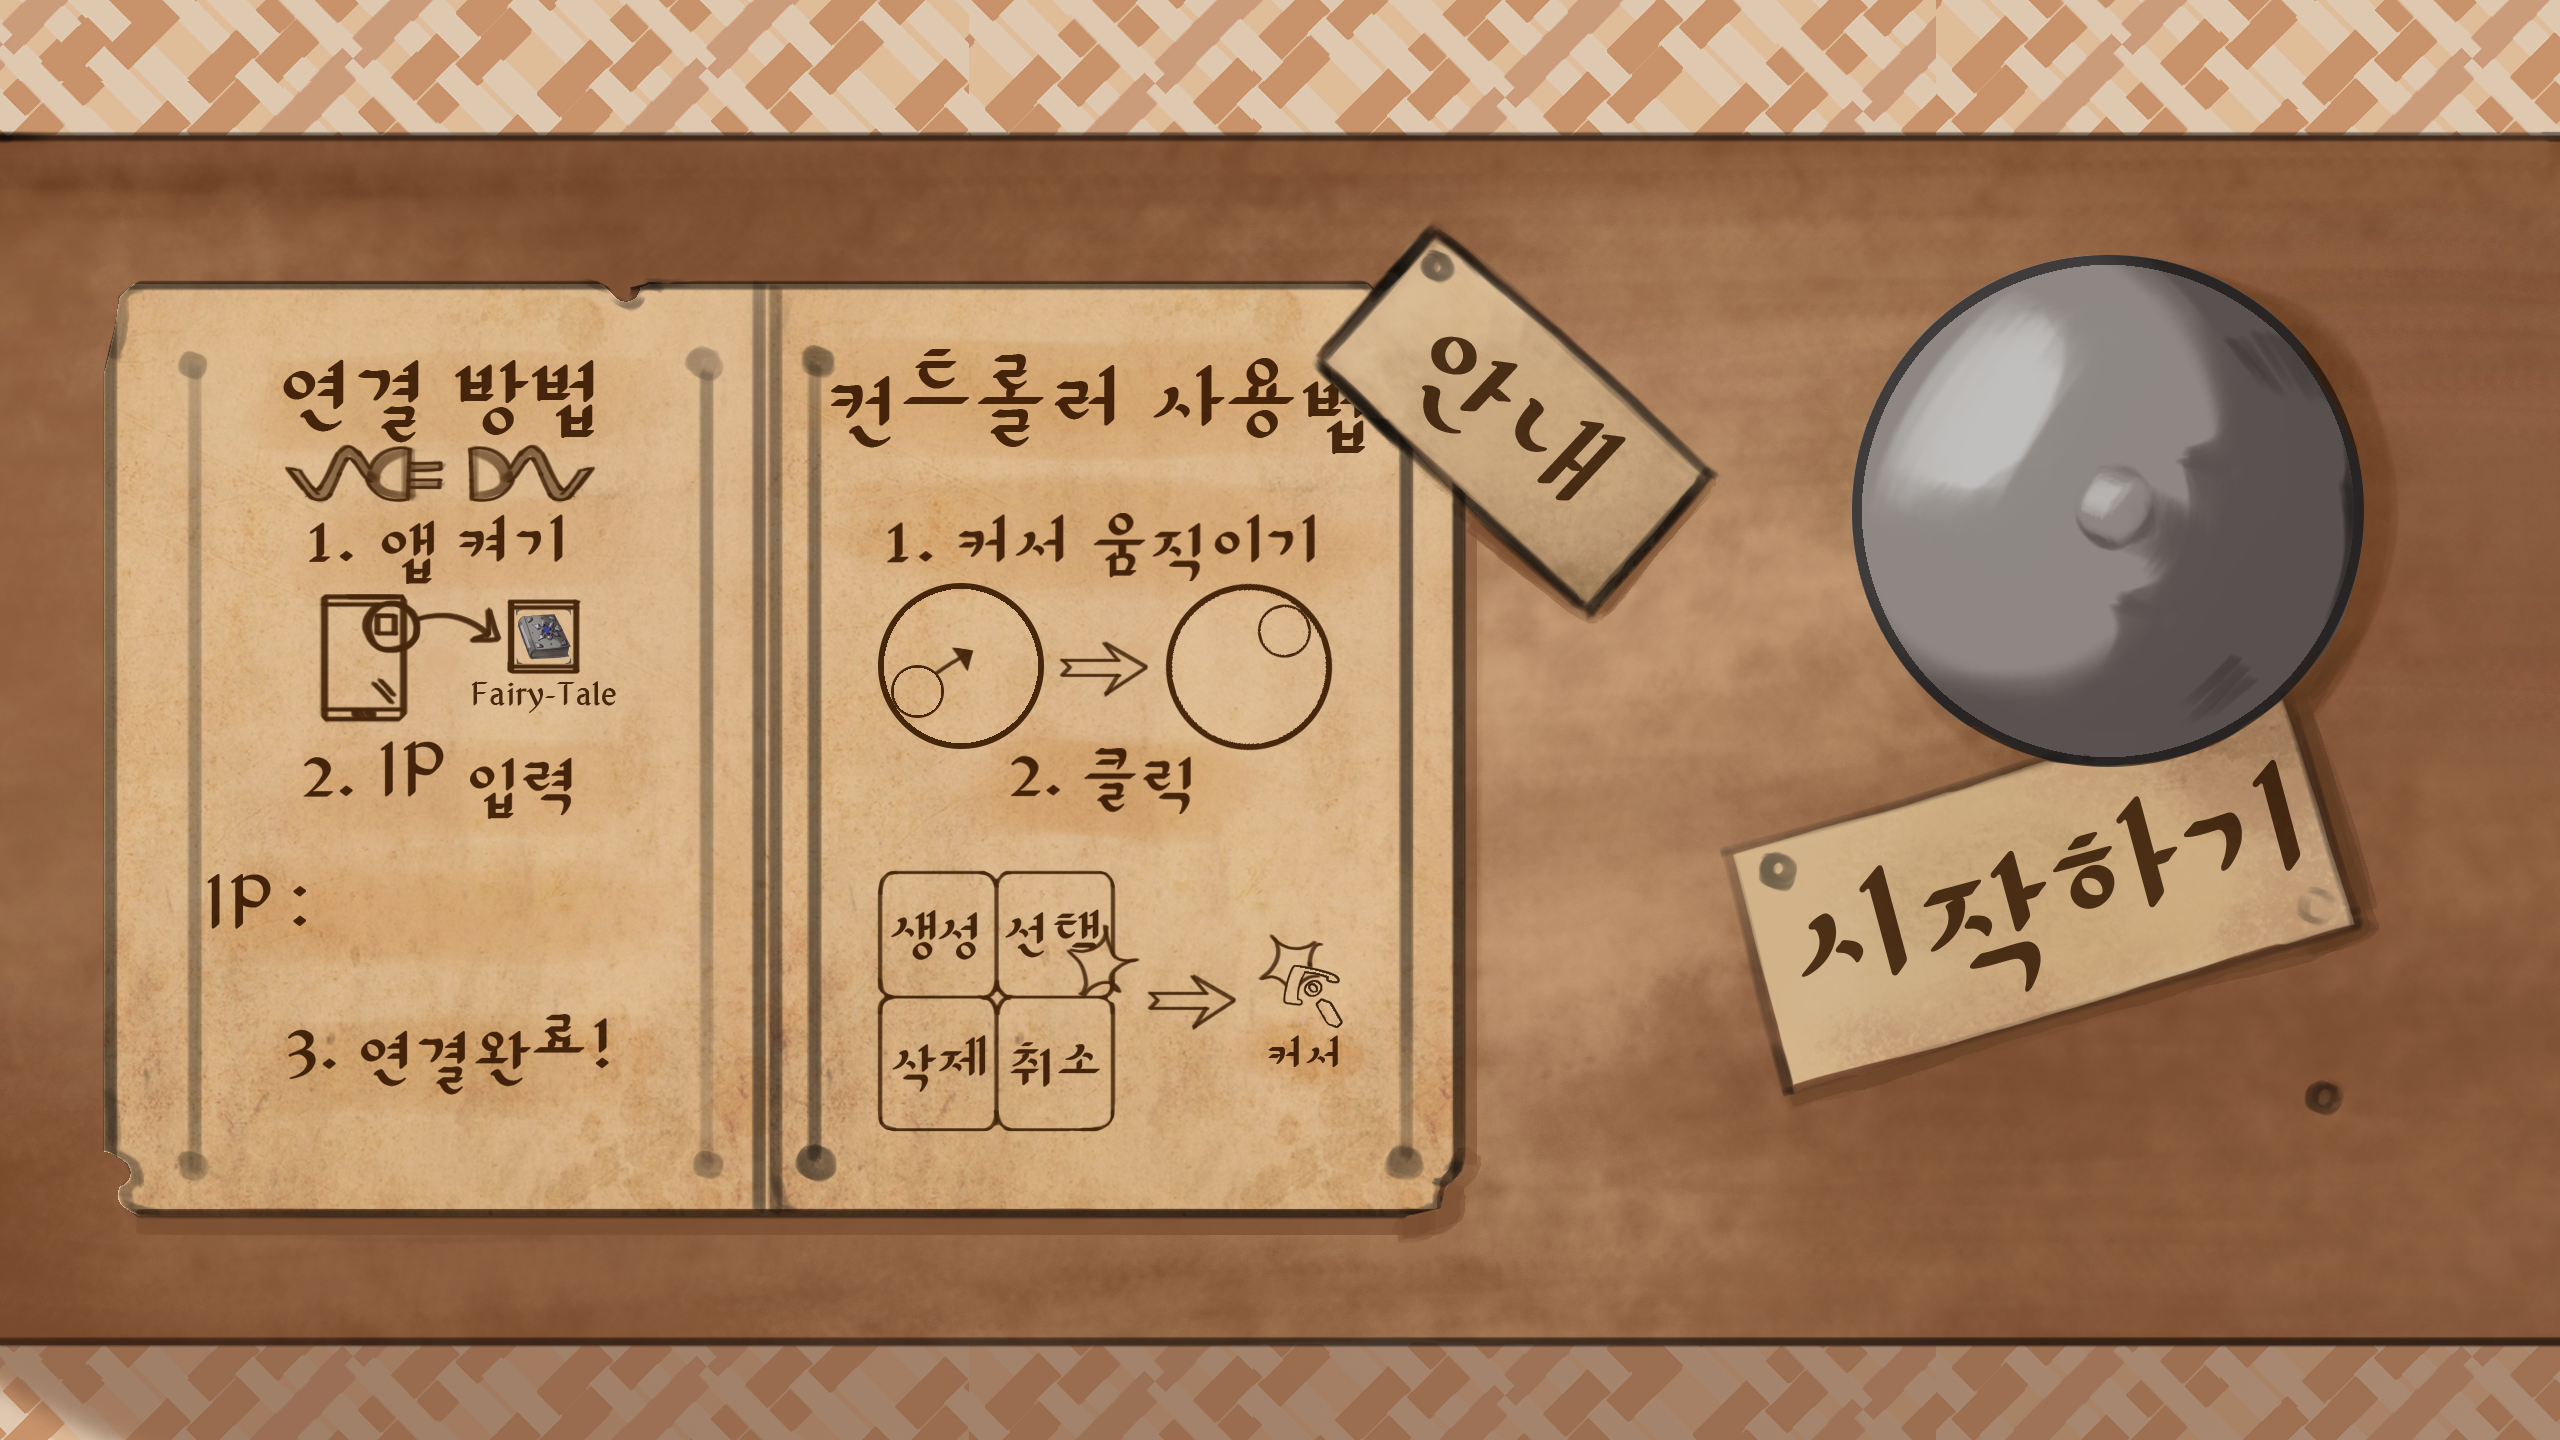 연결 방법
1. 앱 켜기
Fairy-Tale
2. IP 입력
IP :
3. 연결완료!
컨트롤러 사용법
1. 커서 움직이기
2. 클릭
생성 선택
삭제 취소
커서
안내
시작하기